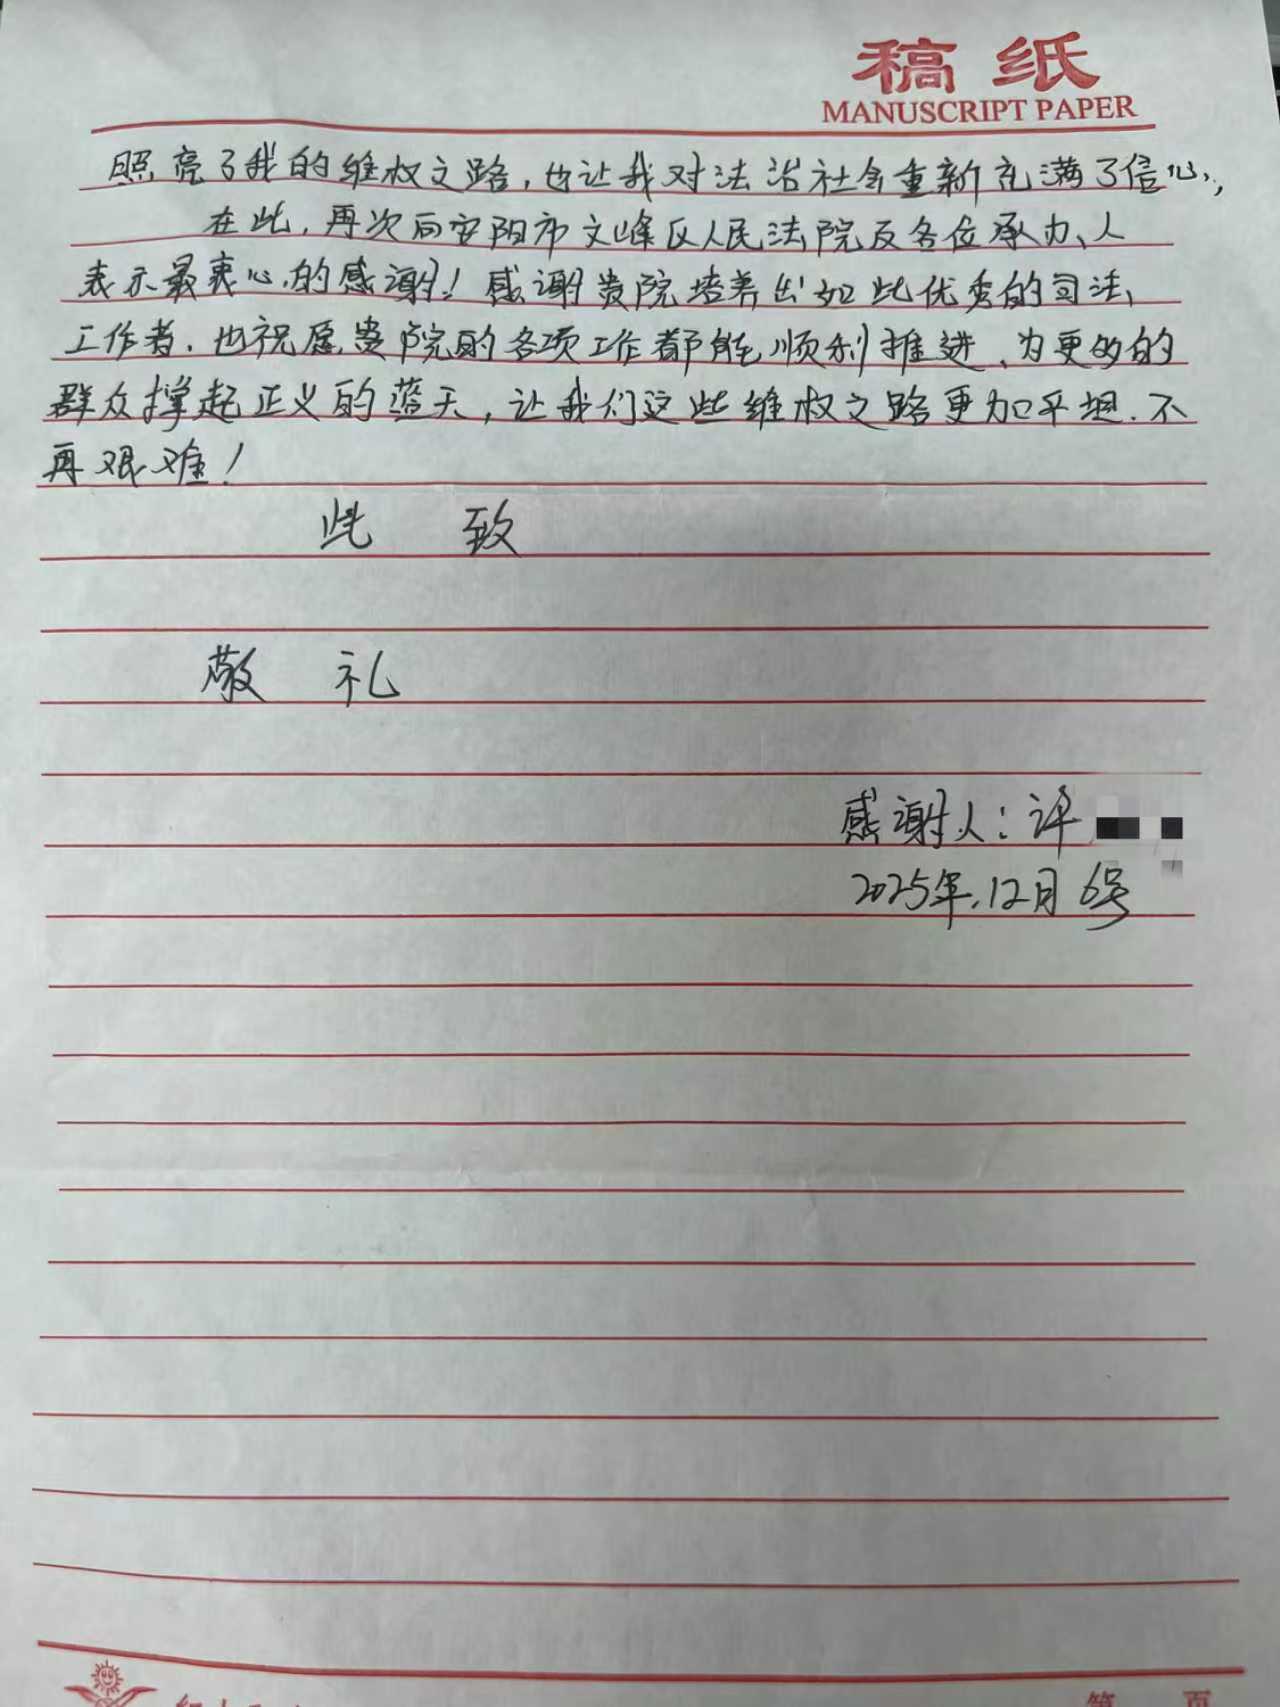 稿纸
MANUSCRIPT PAPER
照亮了我的维权之路，也让我对法治社会重新充满了信心，
在此，再次向安阳市文峰区人民法院及各位承办人
表示最衷心的感谢！感谢贵院培养出如此优秀的司法
工作者，也祝愿贵院的各项工作都能顺利推进，为更多的
群众撑起正义的蓝天，让我们这些维权之路更加平坦，不
再艰难！
此 致
敬 礼
感谢人：许
2025年.12月6号
第 页